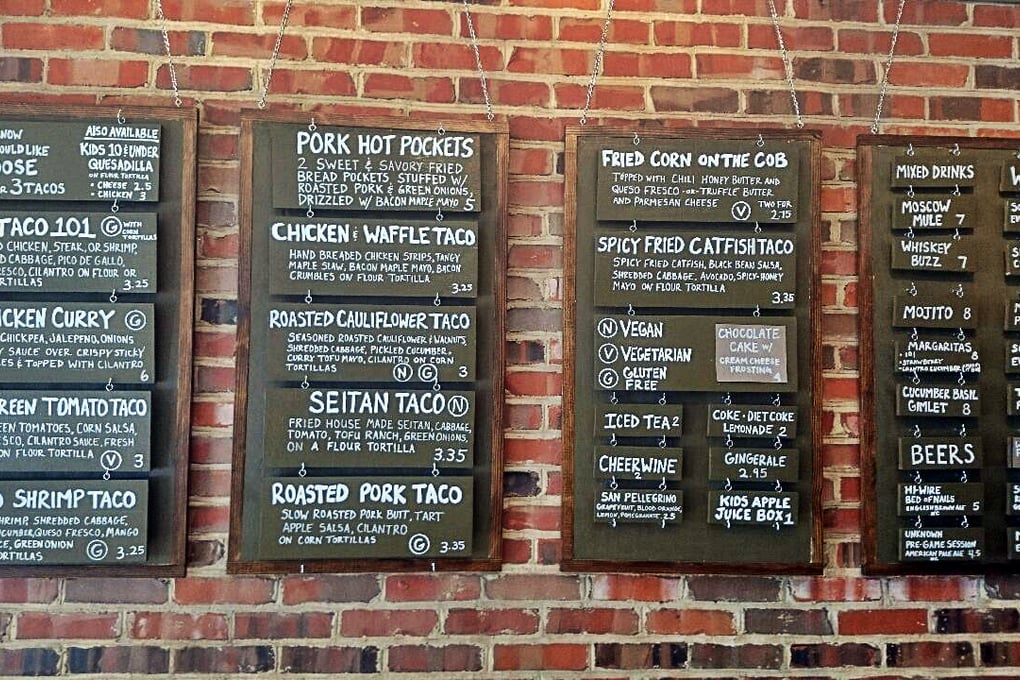 NOW
OULD LIKE
OSE
R 3 TACOS
ALSO AVAILABLE
KIDS 10 & UNDER
QUESADILLA
ON FLOUR TORTILLA
• CHEESE 2.5
• CHICKEN 3
TACO 101 G WITH CORN TORTILLAS
D CHICKEN, STEAK, OR SHRIMP,
D CABBAGE, PICO DE GALLO,
ESCO, CILANTRO ON FLOUR OR
TILLAS 3.25
ICKEN CURRY G
CHICKPEA, JALEPENO, ONIONS
Y SAUCE OVER CRISPY STICKY
ES & TOPPED WITH CILANTRO
6
REEN TOMATO TACO
EEN TOMATOES, CORN SALSA,
ESCO, CILANTRO SAUCE, FRESH
ON FLOUR TORTILLA V 3
D SHRIMP TACO
SHRIMP, SHREDDED CABBAGE,
CUCUMBER, QUESO FRESCO, MANGO
CE, GREEN ONION
TORTILLAS G 3.25
PORK HOT POCKETS
2 SWEET & SAVORY FRIED
BREAD POCKETS, STUFFED W/
ROASTED PORK & GREEN ONIONS,
DRIZZLED W/ BACON MAPLE MAYO 5
CHICKEN & WAFFLE TACO
HAND BREADED CHICKEN STRIPS, TANGY
MAPLE SLAW, BACON MAPLE MAYO, BACON
CRUMBLES ON FLOUR TORTILLA
3.25
ROASTED CAULIFLOWER TACO
SEASONED ROASTED CAULIFLOWER & WALNUTS,
SHREDDED CABBAGE, PICKLED CUCUMBER,
CURRY TOFU MAYO, CILANTRO ON CORN
TORTILLAS N G 3
SEITAN TACO N
FRIED HOUSE MADE SEITAN, CABBAGE,
TOMATO, TOFU RANCH, GREEN ONIONS,
ON A FLOUR TORTILLA 3.35
ROASTED PORK TACO
SLOW ROASTED PORK BUTT, TART
APPLE SALSA, CILANTRO
ON CORN TORTILLAS G 3.35
FRIED CORN ON THE COB
TOPPED WITH CHILI HONEY BUTTER AND
QUESO FRESCO -OR- TRUFFLE BUTTER
AND PARMESAN CHEESE V TWO FOR
2.75
SPICY FRIED CATFISH TACO
SPICY FRIED CATFISH, BLACK BEAN SALSA,
SHREDDED CABBAGE, AVOCADO, SPICY-HONEY
MAYO ON FLOUR TORTILLA
3.35
N VEGAN
V VEGETARIAN
G GLUTEN
FREE
CHOCOLATE
CAKE W/
CREAM CHEESE
FROSTING
4
ICED TEA 2
COKE · DIET COKE
LEMONADE 2
CHEERWINE
2
GINGERALE
2.95
SAN PELLEGRINO
GRAPEFRUIT, BLOOD ORANGE,
LEMON, POMEGRANATE 2.5
KIDS APPLE
JUICE BOX 1
MIXED DRINKS
MOSCOW
MULE 7
WHISKEY
BUZZ 7
MOJITO 8
MARGARITAS 8
• 101
• STRAWBERRY
CUCUMBER BASIL
GIMLET 8
BEERS
HI-WIRE
BED OF NAILS
ENGLISH BROWN ALE 5
NC
UNKNOWN
PRE-GAME SESSION
AMERICAN PALE ALE 4.5
NC